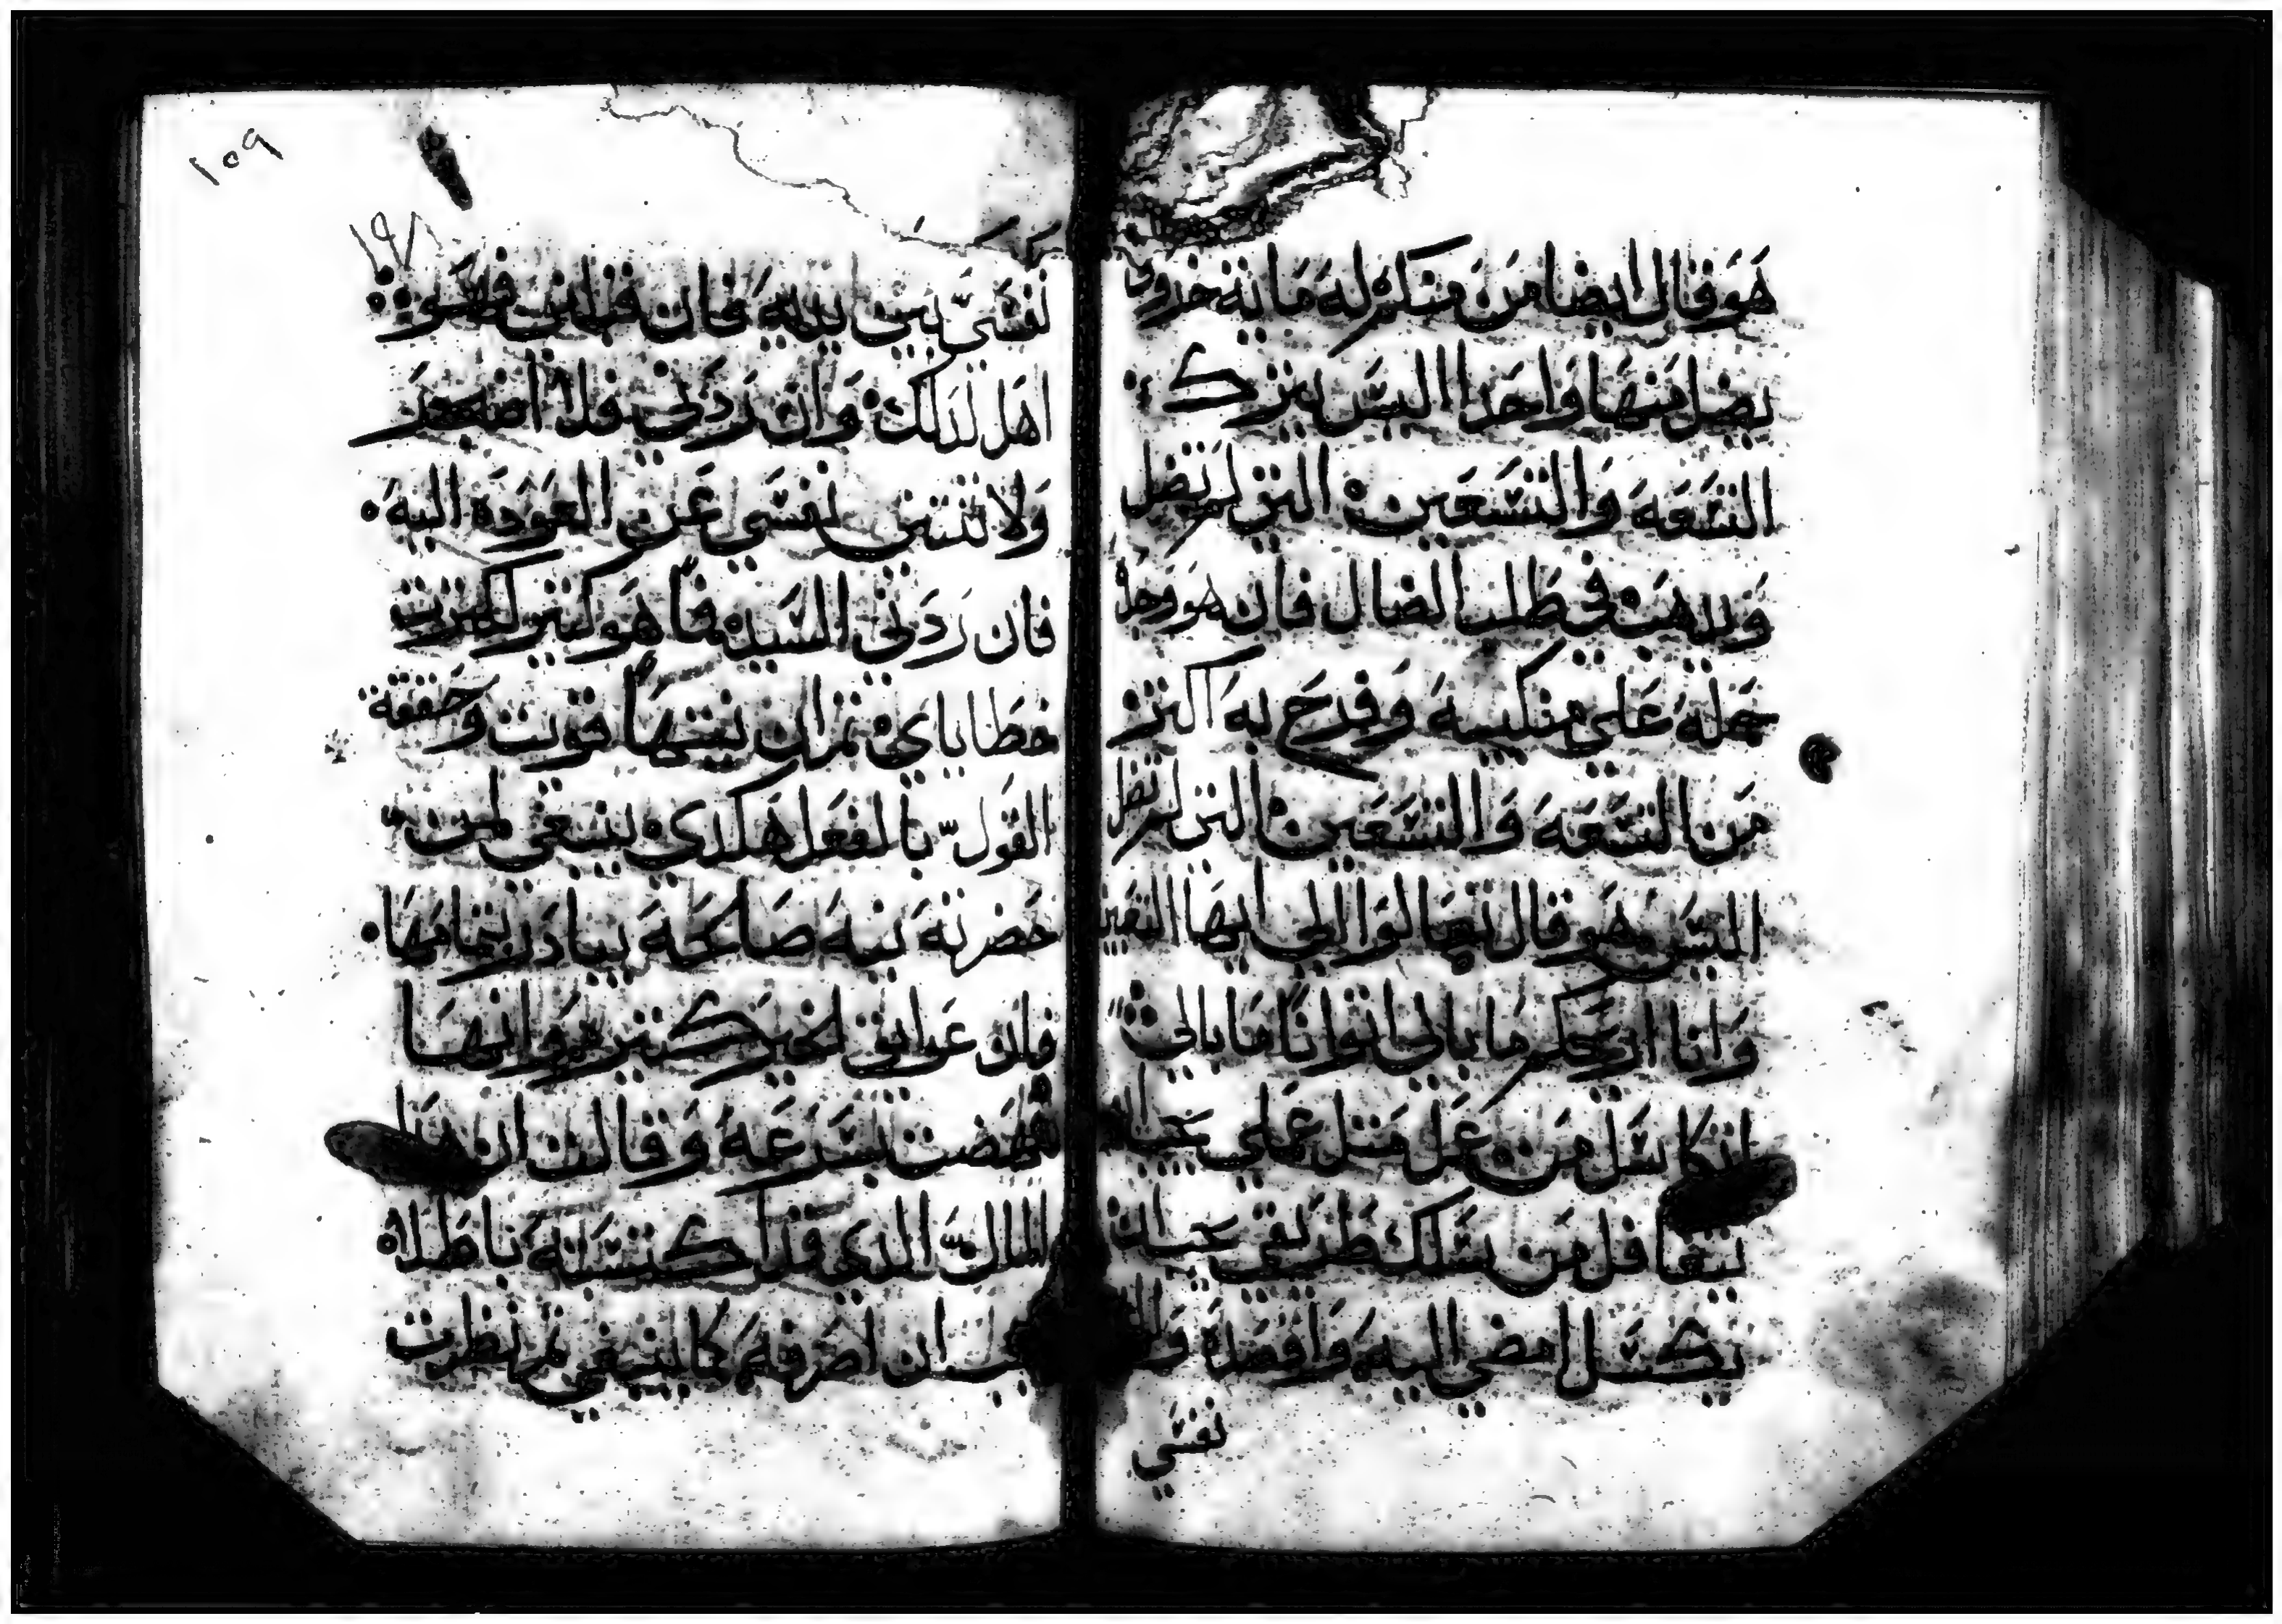 هو قال ايضا من منكم له ماية خروف
يضل منها واحدا اليس يترك
التسعه والتسعين التي لم تضل
ويدهب في طلب الضال فان هو وجد
حمله علي منكبيه وفرح به اكتر
من التسعه والتسعين التي لم تضل
اليس هو قال تعالوا الي ايها التعبين
وانا اريحكم ما بالي اتوانا ما بالي
اتكاسل من عمل متل عملي
يتغافل من يسلك طريقي
يكسل امضي اليه واقصده
نفسي
١٥٩
١٩٨
نفسي بين يديه فان قبلني فهو
اهل لدلك وان ردني فلا اضجر
ولا تنتني نفسي عن العوده اليه
فان ردني السيد فما هو كتير لكترت
خطاياي تم ان نيتها قويت وحققة
القول بالفعل هكدي ينبغي لمن
حضرته نيه صالحه يبادر بتمامها
فان عوايق الخير كتيره وانها
نهضت بسرعه وقالت ان هدا
المال الدي قد اكتسبته باطلا
يجب ان اصرفه كما ينبغي تم نظرت